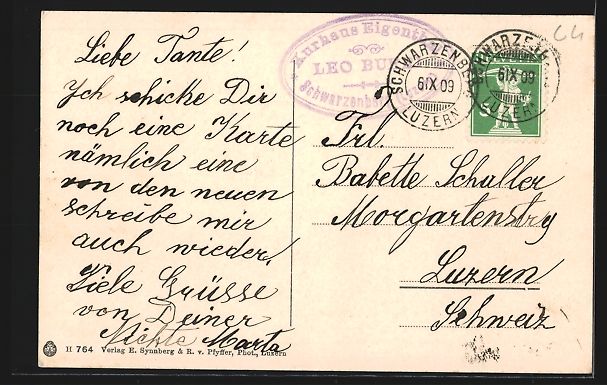 Liebe Tante!
Ich schicke Dir
noch eine Karte
nämlich eine
von den neuen
schreibe mir
auch wieder.
Viele Grüsse
von Deiner
Nichte Marta
Kurhaus Eigenthal
LEO BU
Schwarzenberg
SCHWARZENBERG
6 IX 09
LUZERN
SCHWARZENBERG
6 IX 09
LUZERN
Frl.
Babette Schaller
Morgartenstr
Luzern
Schweiz
H 764 Verlag E. Synnberg & R. v. Pfyffer, Phot., Luzern